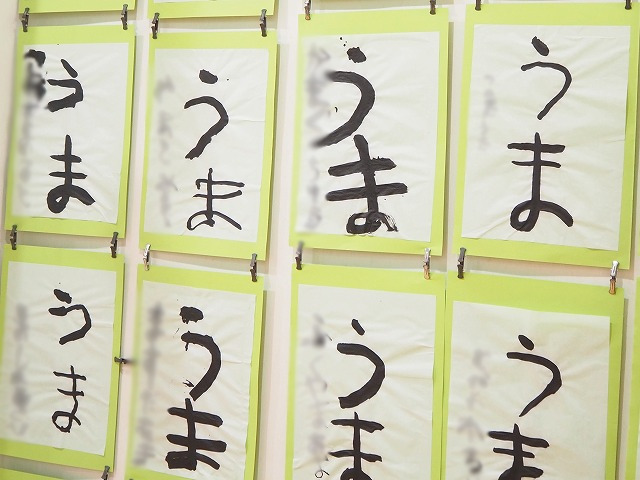 うま
うま
うま
うま
うま
うま
うま
うま